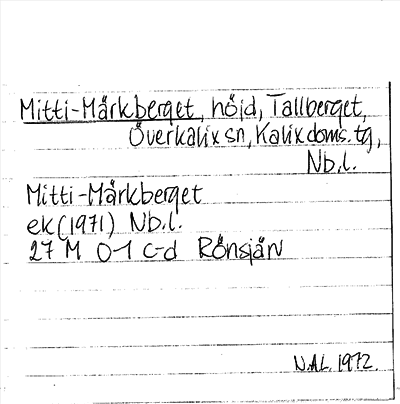 Mitti-Mårkberget, höjd, Tallberget,
Överkalix sn, Kalix doms. tg,
Nb.l.
Mitti-Mårkberget
ek (1971) Nb.l.
27 M 0-1 c-d Rånsjärv
N.Al. 1972.